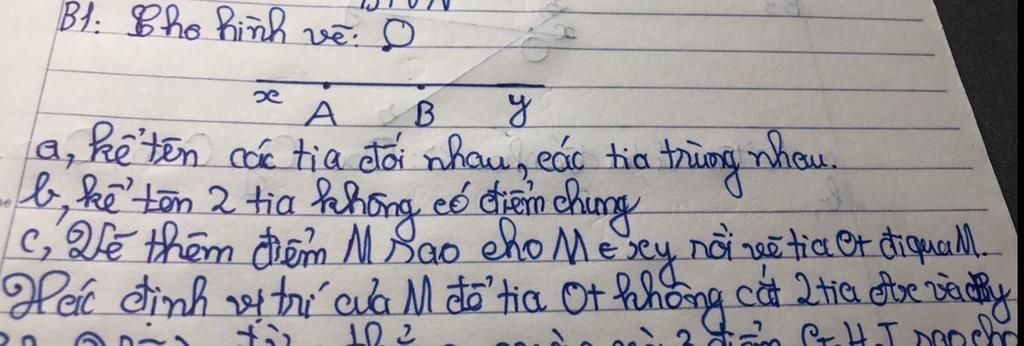 B1: Cho hình vẽ: O
x A B y
a, kể tên các tia đối nhau, các tia trùng nhau.
b, kể tên 2 tia không có điểm chung
c, Vẽ thêm điểm M sao cho M ∈ xy rồi vẽ tia Ot đi qua M.
Xác định vị trí của M để tia Ot không cắt 2 tia Ax và By
điểm G, H, I sao cho